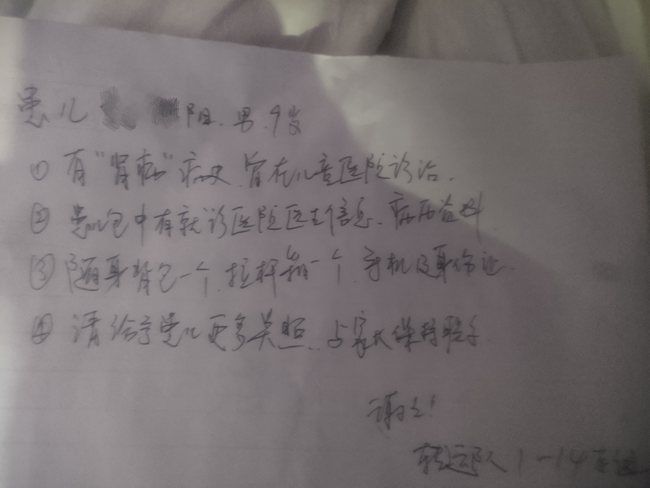 患儿 阳.男.9岁
① 有"肾病"病史.曾在儿童医院诊治.
② 患儿包中有就诊医院医生信息.病历资料
③ 随身背包一个.拉杆箱一个.手机及身份证.
④ 请给予患儿更多关照.与家长保持联系.
谢谢!
转运队 1-14